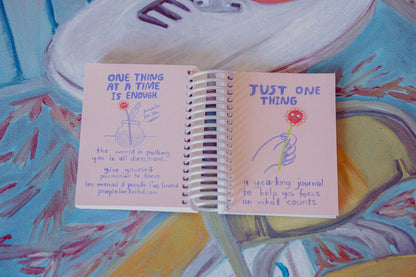 ONE THING
AT A TIME
IS ENOUGH.
made
in the
the world is pulling
you in all directions...
give yourself
permission to focus.
peopleiveloved.com
JUST ONE
THING
a yearlong journal
to help you focus
on what counts.